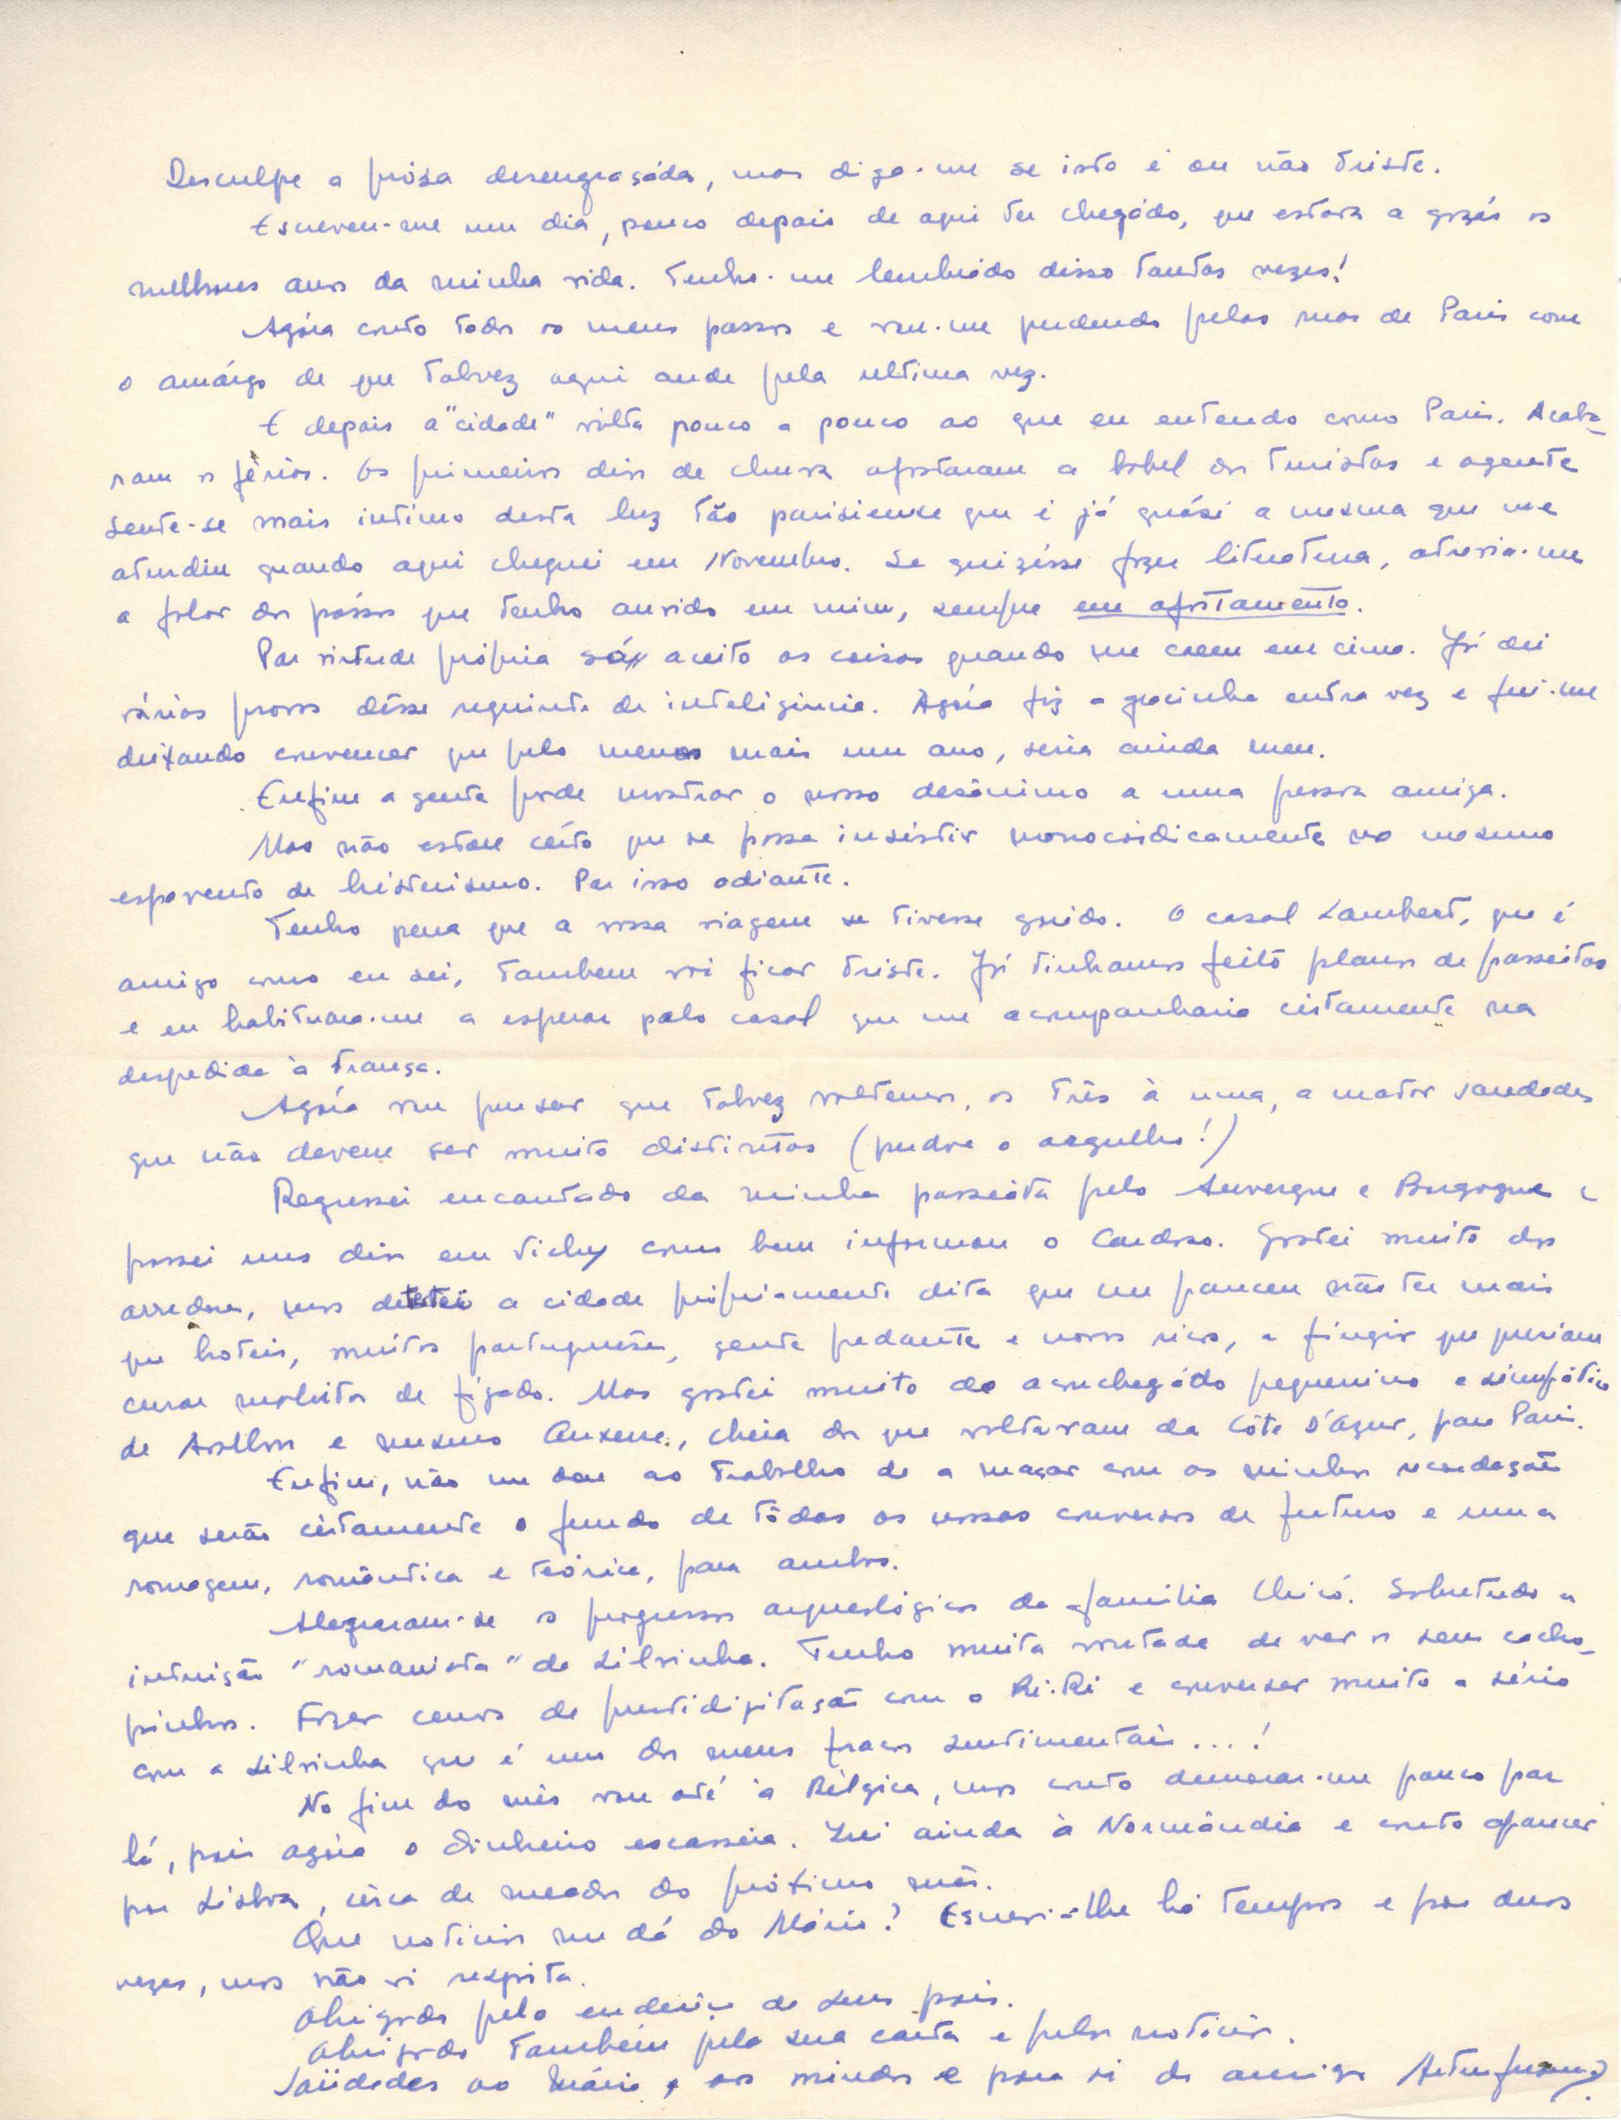 Desculpe a prósa desengraçáda, mas diga-me se isto é ou não triste.
Escreveu-me um dia, pouco depois de aqui ter chegádo, que estava a gozár os
melhores anos da minha vida. Tenho-me lembrádo disso tantas vezes!
Agóra conto todos os meus passos e vou-me perdendo pelas ruas de Paris com
o amárgo de que talvez aqui ande pela ultima vez.
E depois a "cidade" vólta pouco a pouco ao que eu entendo como Paris. Acaba-
ram as férias. Os primeiros dias de chuva afastaram a babel dos turistas e agente
sente-se mais intimo desta luz tão parisiense que é já quási a mesma que me
aturdiu quando aqui cheguei em Novembro. Se quizésse fazer literatura, atrevia-me
a falar dos pássos que tenho ouvido em mim, sempre em afastamento.
Por virtude própria só aceito as coisas quando me caem em cima. Já dei
várias provas dêsse requinte de inteligência. Agóra fiz a gracinha outra vez e fui-me
deixando convencer que pelo menos mais um ano, seria ainda meu.
Enfim a gente pode mostrar o nosso desânimo a uma pessoa amiga.
Mas não estou cérto que se possa insistir monocórdicamente no mesmo
espavento de histerismo. Por isso adiante.
Tenho pena que a vossa viagem se tivesse gorido. O casal Lambert, que é
amigo como eu sei, tambem vai ficar triste. Já tinhamos feito planos de passeitos
e eu habituara-me a esperar pelo casal que me acompanharia cértamente na
despedida à França.
Agóra vou pensar que talvez voltemos, os três à uma, a matar saudades
que não devem ser muito distintas (perdoe o orgulho!)
Regressei encantado da minha passeáta pelo Auvergne e Bourgogne e
passei uns dias em Vichy como bem informou o Cardoso. Gostei muito dos
arredores, mas detestei a cidade própriamente dita que me pareceu não ter mais
que hoteis, muitos portugueses, gente pedante e novos ricos, a fingir que queriam
curar moléstias de fígado. Mas gostei muito do aconchegádo pequenino e simpático
de Avallon e mesmo Auxerre, cheia dos que voltavam da Côte d'Azur, para Paris.
Enfim, não me dou ao trabalho de a maçar com as minhas recordações
que serão cértamente o fundo de tôdas as nossas conversas de futuro e uma
romagem, romântica e teórica, para ambos.
Alegraram-me os progressos arqueológicos da familia Chicó. Sobretudo a
intuição "romanista" da Silvinha. Tenho muita vontade de ver os seus cacho-
pinhos. Fazer cenas de prestidigitação com o Ri-Ri e conversar muito a sério
com a Silvinha que é um dos meus fracos sentimentais...!
No fim do mês vou até à Bélgica, mas conto demorar-me pouco por
lá, pois agóra o dinheiro escasseia. Irei ainda à Normândia e conto aparecer
por Lisbôa, cêrca de meados do próximo mês.
Que noticias me dá do Mário? Escrevi-lhe há tempos e por duas
vezes, mas não vi resposta.
Obrigado pelo endereço de seus pais.
Obrigado também pela sua carta e pelas noticias.
Saüdades ao Mário, aos miudos e para si do amigo